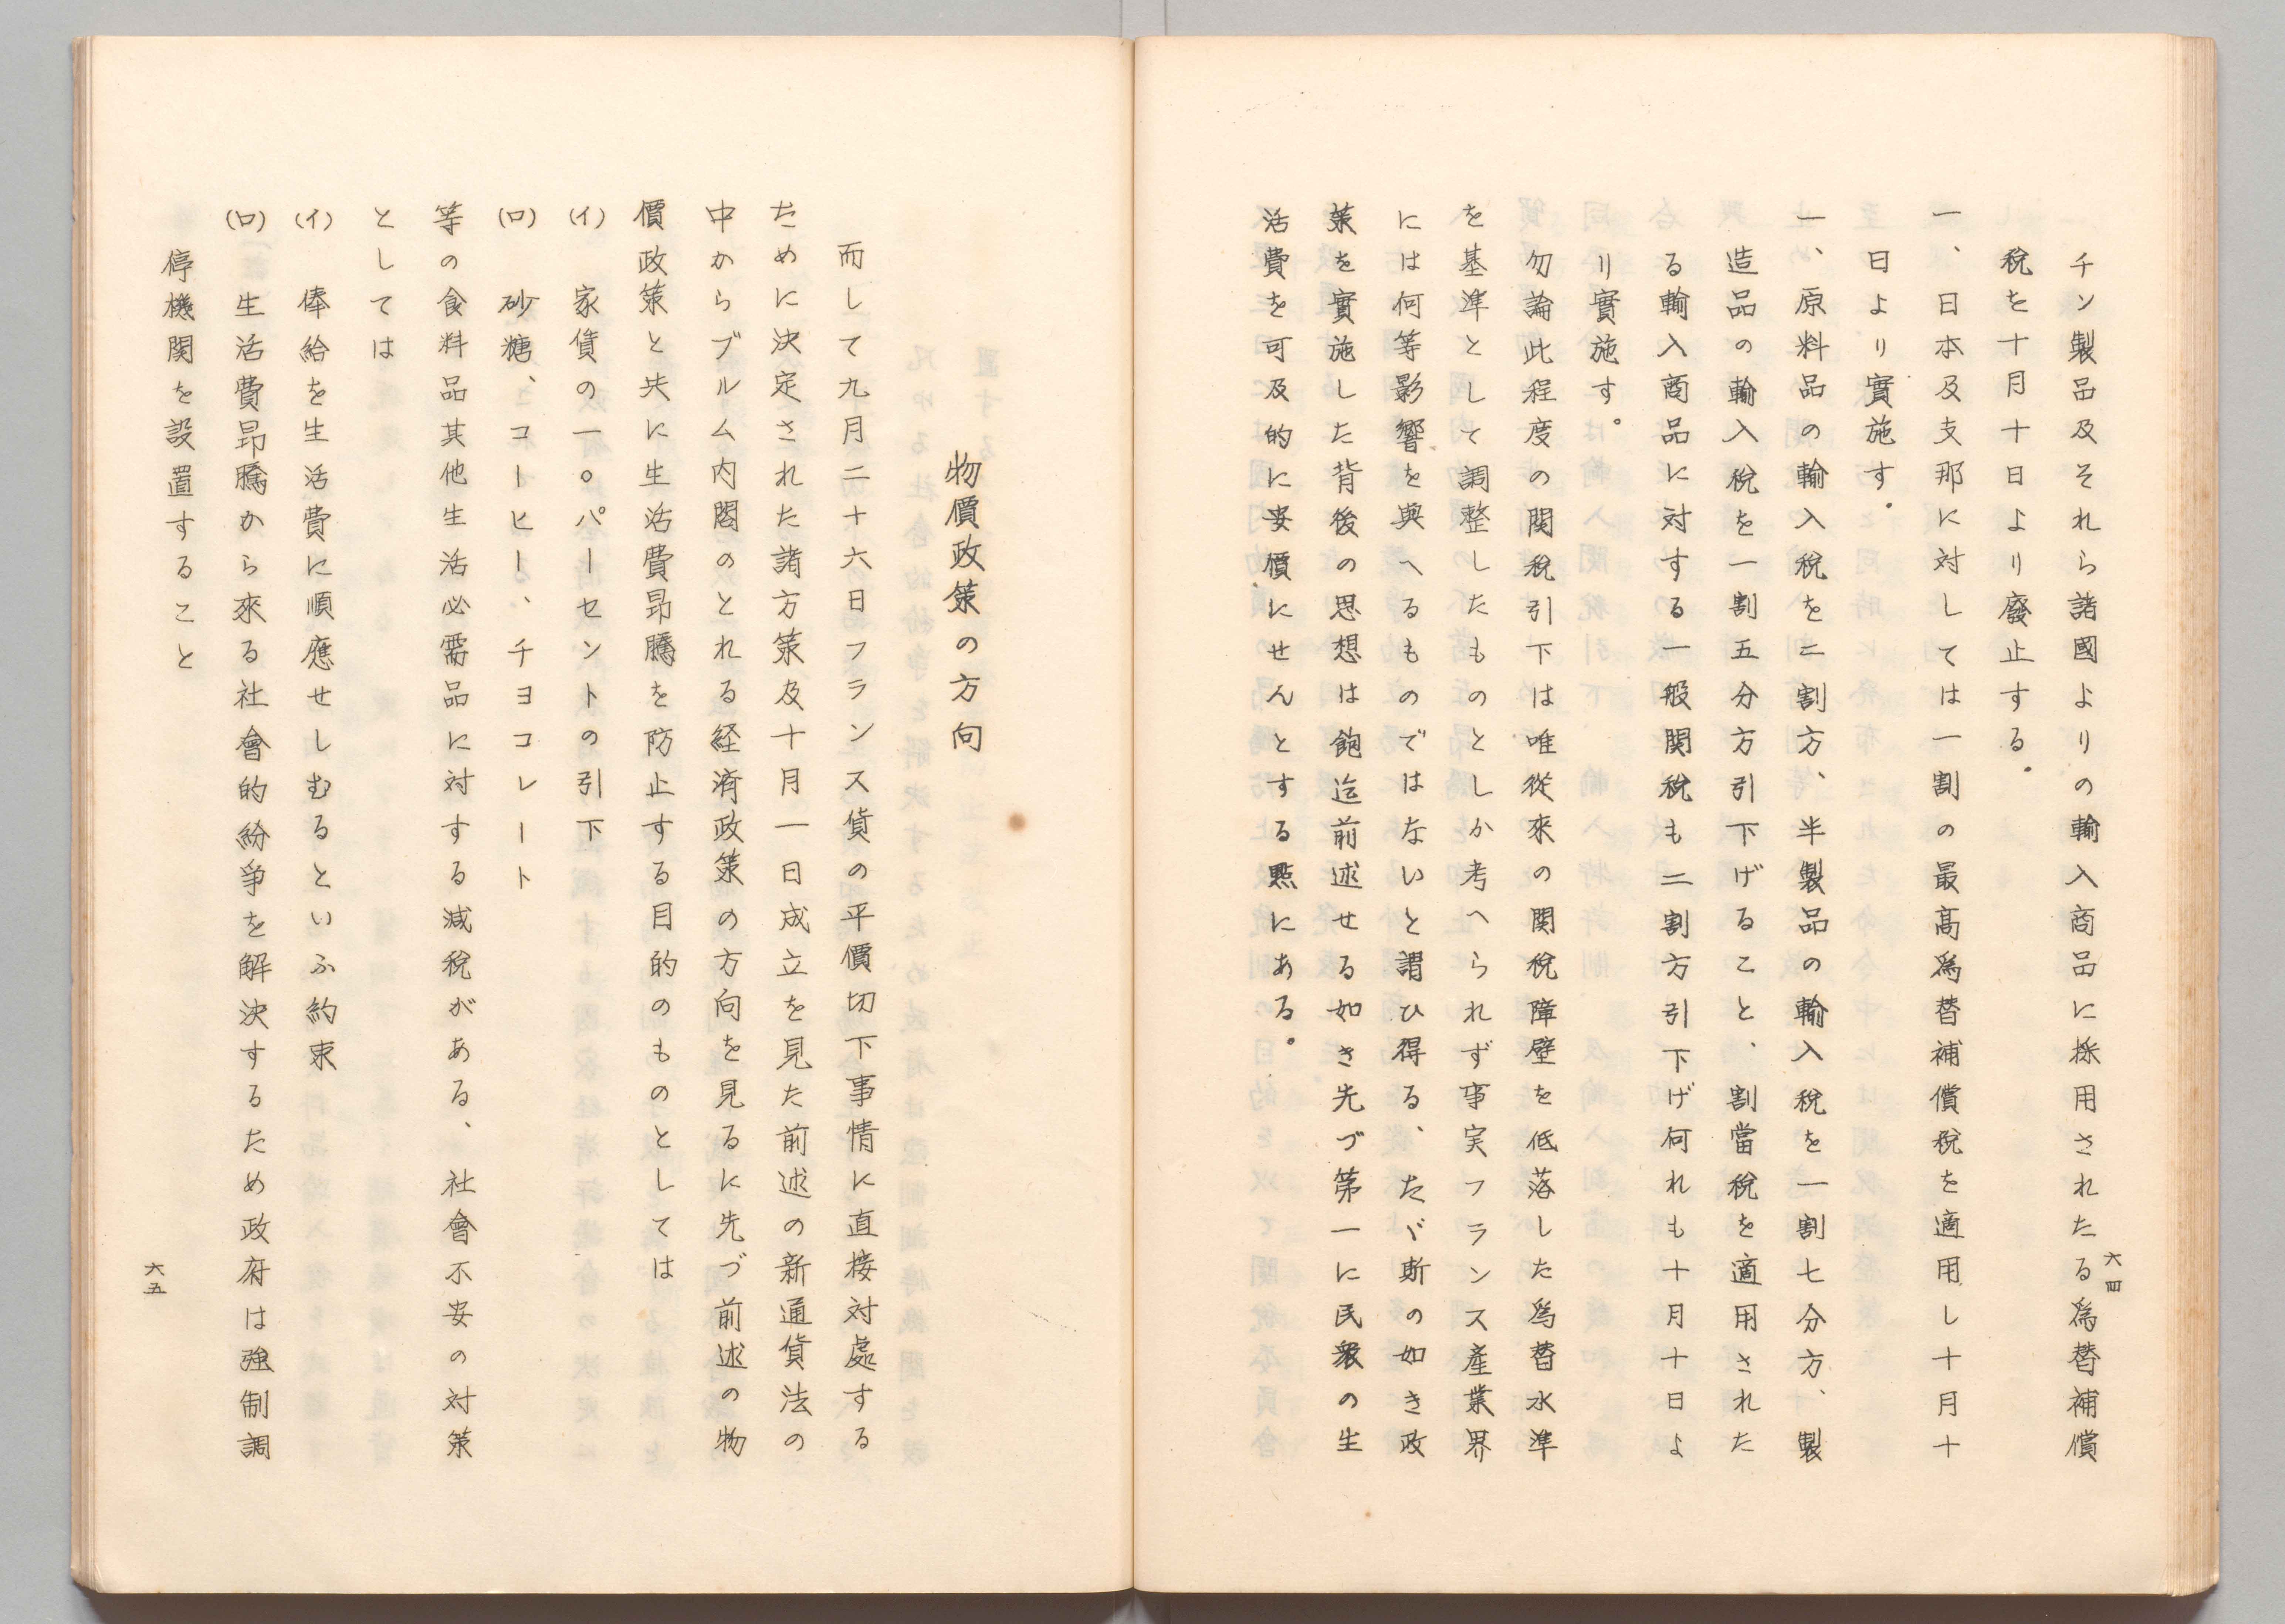 チン製品及それら諸國よりの輸入商品に採用されたる為替補償
税を十月十日より廢止する。
一、日本及支那に対しては一割の最高為替補償税を適用し十月十
日より實施す。
一、原料品の輸入税を二割方、半製品の輸入税を一割七分方、製
造品の輸入税を一割五分方引下げること、割當税を適用された
る輸入商品に対する一般関税も二割方引下げ何れも十月十日よ
り實施す。
勿論此程度の関税引下は唯従來の関税障壁を低落した為替水準
を基準として調整したものとしか考へられず事実フランス産業界
には何等影響を與へるものではないと謂ひ得る、たゞ斯の如き政
策を實施した背後の思想は飽迄前述せる如き先づ第一に民衆の生
活費を可及的に安價にせんとする點にある。
六四
物價政策の方向
而して九月二十六日フランス貨の平價切下事情に直接対處する
ために決定された諸方策及十月一日成立を見た前述の新通貨法の
中からブルム内閣のとれる経済政策の方向を見るに先づ前述の物
價政策と共に生活費昻騰を防止する目的のものとしては
(イ) 家賃の一〇パーセントの引下
(ロ) 砂糖、コーヒー、チヨコレート
等の食料品其他生活必需品に対する減税がある、社會不安の対策
としては
(イ) 俸給を生活費に順應せしむるといふ約束
(ロ) 生活費昻騰から來る社會的紛争を解決するため政府は強制調
停機関を設置すること
六五